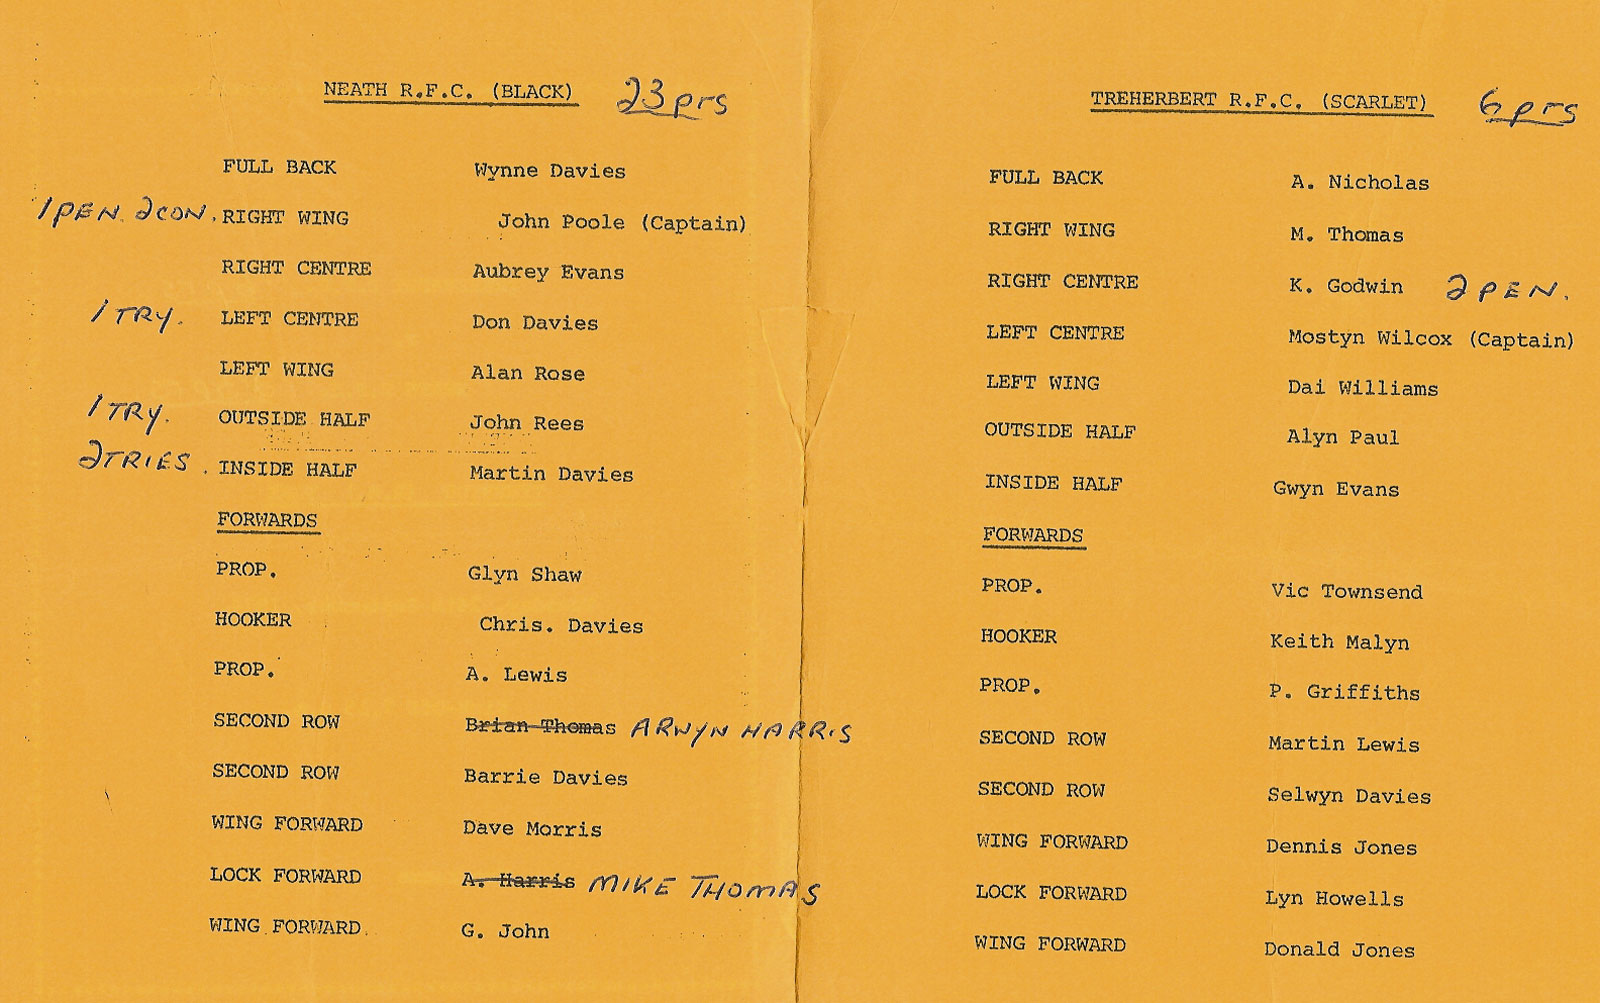 NEATH R.F.C. (BLACK) 23 prs
FULL BACK Wynne Davies
1 PEN. 2 CON. RIGHT WING John Poole (Captain)
RIGHT CENTRE Aubrey Evans
1 TRY. LEFT CENTRE Don Davies
LEFT WING Alan Rose
1 TRY. OUTSIDE HALF John Rees
2 TRIES. INSIDE HALF Martin Davies
FORWARDS
PROP. Glyn Shaw
HOOKER Chris. Davies
PROP. A. Lewis
SECOND ROW Brian Thomas ARWYN HARRIS
SECOND ROW Barrie Davies
WING FORWARD Dave Morris
LOCK FORWARD A. Harris MIKE THOMAS
WING FORWARD. G. John
TREHERBERT R.F.C. (SCARLET) 6 prs
FULL BACK A. Nicholas
RIGHT WING M. Thomas
RIGHT CENTRE K. Godwin 2 PEN.
LEFT CENTRE Mostyn Wilcox (Captain)
LEFT WING Dai Williams
OUTSIDE HALF Alyn Paul
INSIDE HALF Gwyn Evans
FORWARDS
PROP. Vic Townsend
HOOKER Keith Malyn
PROP. P. Griffiths
SECOND ROW Martin Lewis
SECOND ROW Selwyn Davies
WING FORWARD Dennis Jones
LOCK FORWARD Lyn Howells
WING FORWARD Donald Jones